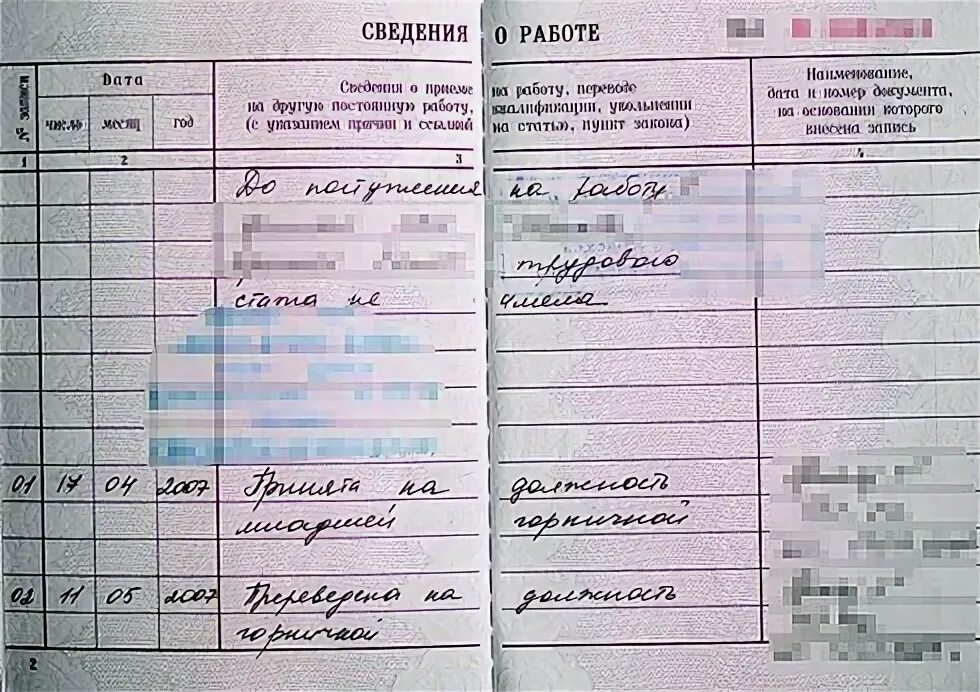 СВЕДЕНИЯ О РАБОТЕ
№ записи
Дата
число
месяц
год
Сведения о приеме на работу, переводе
на другую постоянную работу, квалификации, увольнении
(с указанием причин и ссылкой на статью, пункт закона)
Наименование,
дата и номер документа,
на основании которого
внесена запись
1 2 3 4
До поступления на работу
трудового
стажа не имела
01 17 04 2007 Принята на должность
младшей горничной
02 11 05 2007 Переведена на должность
горничной
2